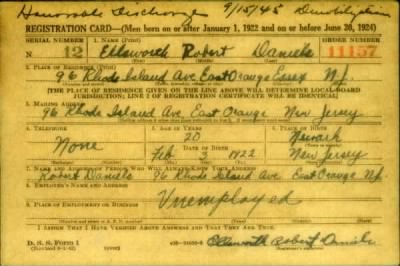 Honorable Discharge 9/15/45 Demobilization
REGISTRATION CARD—(Men born on or after January 1, 1922 and on or before June 30, 1924)
SERIAL NUMBER 1. NAME (Print) ORDER NUMBER
N 12 Ellsworth Robert Daniels 11157
(First) (Middle) (Last)
2. PLACE OF RESIDENCE (Print)
96 Rhode Island Ave East Orange Essex N.J.
[THE PLACE OF RESIDENCE GIVEN ON THE LINE ABOVE WILL DETERMINE LOCAL BOARD
JURISDICTION; LINE 2 OF REGISTRATION CERTIFICATE WILL BE IDENTICAL]
3. MAILING ADDRESS
96 Rhode Island Ave. East Orange New Jersey
4. TELEPHONE 5. AGE IN YEARS 6. PLACE OF BIRTH
20 Newark
None DATE OF BIRTH
Feb 3 1922 New Jersey
7. NAME AND ADDRESS OF PERSON WHO WILL ALWAYS KNOW YOUR ADDRESS
Robert Daniels 96 Rhode Island Ave East Orange N.J.
8. EMPLOYER'S NAME AND ADDRESS
Unemployed
9. PLACE OF EMPLOYMENT OR BUSINESS
I AFFIRM THAT I HAVE VERIFIED ABOVE ANSWERS AND THAT THEY ARE TRUE.
D. S. S. Form 1
Ellsworth Robert Daniels